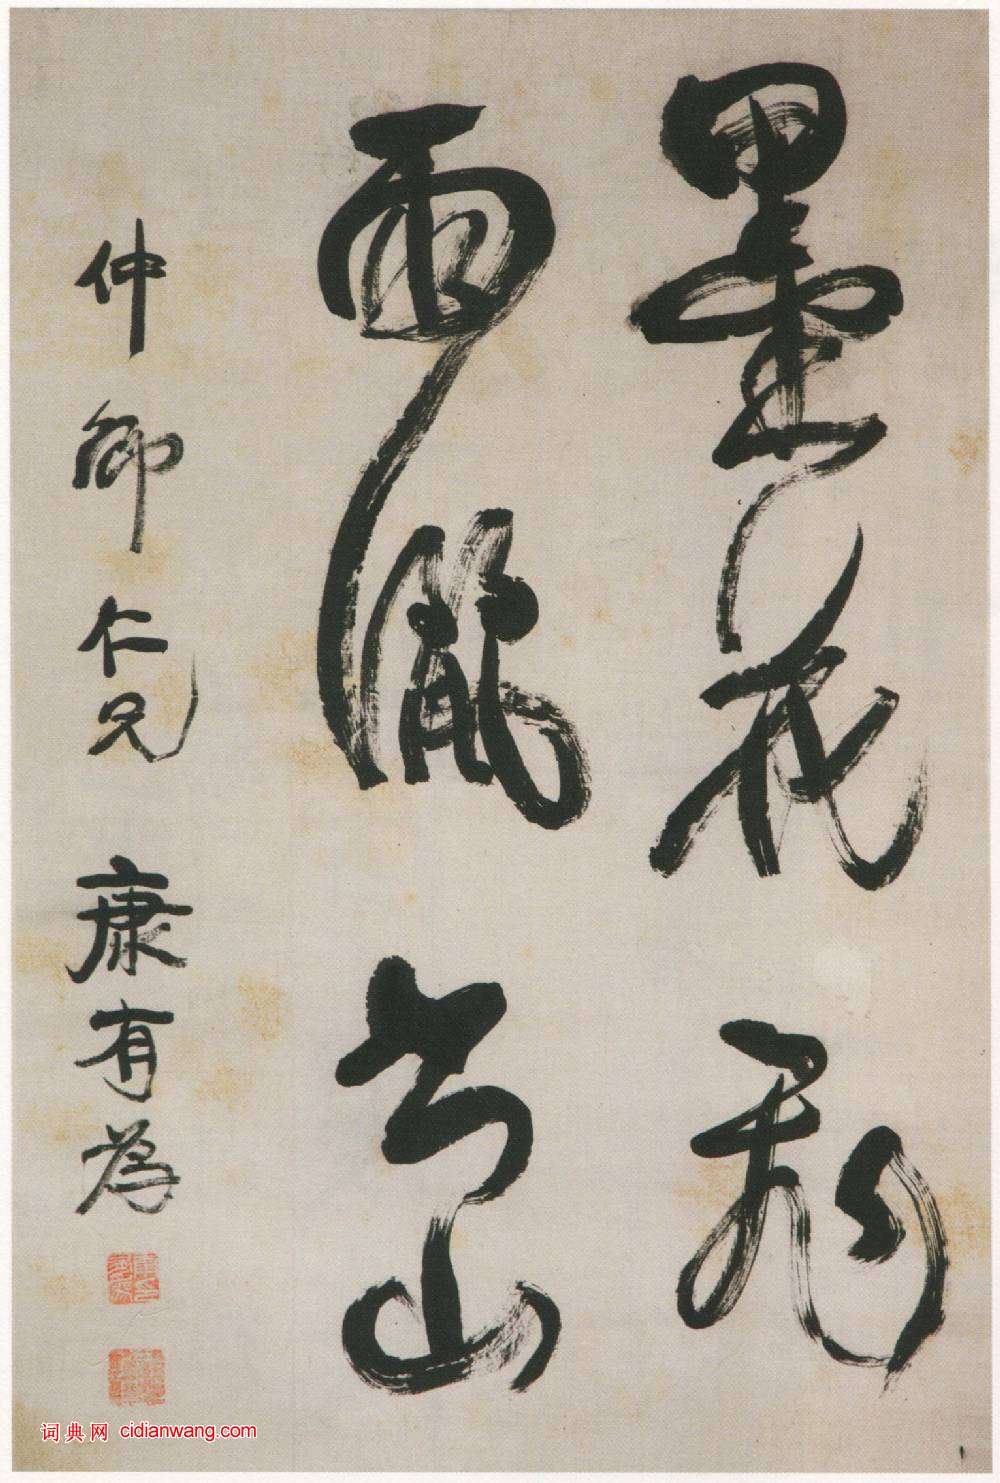 墨花飛
雨龍出山
仲卿仁兄 康有為
词典网 cidianwang.com